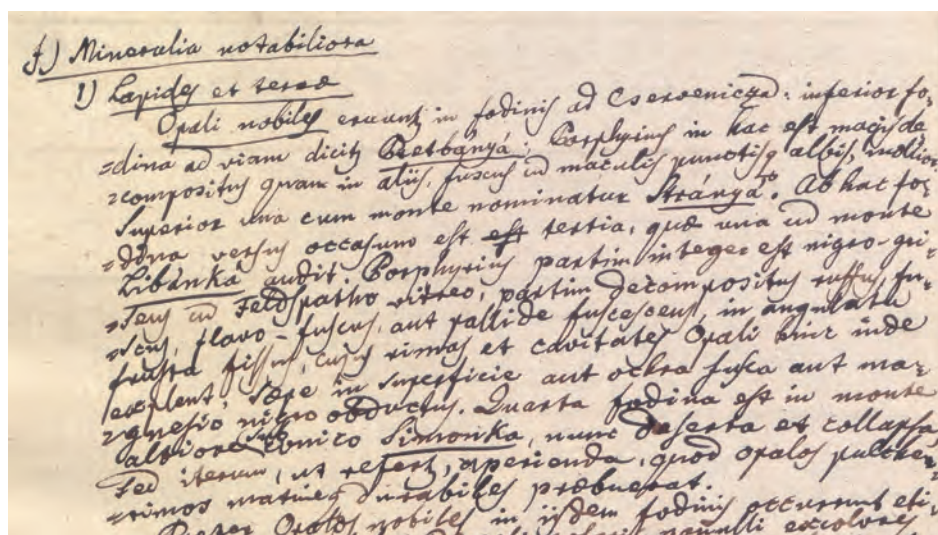 f.) Mineralia notabiliora
1) Lapides et terræ
Opali nobiles eruunt in fodinis ad Cservenicza: inferior fo-
=dina ad viam dicit Pretbánya; Porphyrius in hac est magis de
=compositus quam in aliis, fuscus cu maculis punctisq albis,
Superior una cum monte nominatur Stránya. Ab hac fo-
=dina versus occasum est tertia, quæ una cu monte
Libánka audit. Porphyrius partim integer est nigro-gri-
=seus cu Feldspatho vitreo, partim decompositus ruffus, fu-
=scus, flavo-fuscus, aut pallide fuscescens, in angulata
frusta fissus, cujus rimas et cavitates Opali hinc inde
explent, sæpe in superficie aut ochra fusca aut ma-
=gnesio nigro obductus. Quarta fodina est in monte
altiore conico Simonka, nunc deserta et collapsa,
sed iterum, ut refert, aperienda, quod opalos pulcher-
=rimos maxime durabiles præbuerat.
Præter Opalos nobiles in iisdem fodinis occurrunt eti-
nonnulli excolores